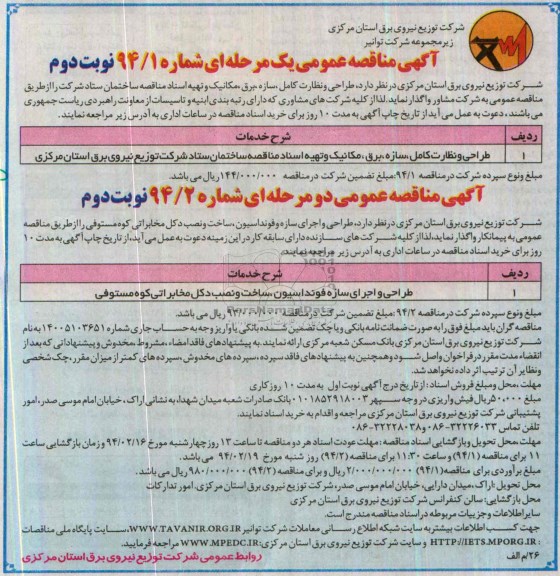 شرکت توزیع نیروی برق استان مرکزی
زیرمجموعه شرکت توانیر
آگهی مناقصه عمومی یک مرحله ای شماره ۹۴/۱ نوبت دوم
شرکت توزیع نیروی برق استان مرکزی در نظر دارد، طراحی و نظارت کامل، سازه، برق، مکانیک و تهیه اسناد مناقصه ساختمان ستاد شرکت را از طریق
مناقصه عمومی به شرکت مشاور واگذار نماید، لذا از کلیه شرکت های مشاوری که دارای رتبه بندی ابنیه و تاسیسات از معاونت راهبردی ریاست جمهوری
می باشند، دعوت به عمل می آید از تاریخ چاپ آگهی به مدت ۱۰ روز برای خرید اسناد مناقصه در ساعات اداری به آدرس زیر مراجعه نمایند.
ردیف شرح خدمات
۱ طراحی و نظارت کامل، سازه، برق، مکانیک و تهیه اسناد مناقصه ساختمان ستاد شرکت توزیع نیروی برق استان مرکزی
مبلغ و نوع سپرده شرکت در مناقصه ۹۴/۱: مبلغ تضمین شرکت در مناقصه ۱۴۴/۰۰۰/۰۰۰ ریال می باشد.
آگهی مناقصه عمومی دو مرحله ای شماره ۹۴/۲ نوبت دوم
شرکت توزیع نیروی برق استان مرکزی در نظر دارد، طراحی و اجرای سازه و فونداسیون، ساخت و نصب دکل مخابراتی کوه مستوفی را از طریق مناقصه
عمومی به پیمانکار واگذار نماید، لذا از کلیه شرکت های سازنده دارای سابقه کار در این زمینه دعوت به عمل می آید، از تاریخ چاپ آگهی به مدت ۱۰
روز برای خرید اسناد مناقصه در ساعات اداری به آدرس زیر مراجعه نمایند.
ردیف شرح خدمات
۱ طراحی و اجرای سازه فونداسیون، ساخت و نصب دکل مخابراتی کوه مستوفی
مبلغ و نوع سپرده شرکت در مناقصه ۹۴/۲: مبلغ تضمین شرکت در مناقصه ریال می باشد.
مناقصه گران باید مبلغ فوق را به صورت ضمانت نامه بانکی و یا چک تضمین شده بانکی یا واریز وجه به حساب جاری شماره ۱۴۰۰۵۱۰۳۶۵۱ به نام
شرکت توزیع نیروی برق استان مرکزی بانک مسکن شعبه مرکزی ارائه نمایند. به پیشنهادهای فاقد امضاء، مشروط، مخدوش و پیشنهاداتی که بعد از
انقضاء مدت مقرر در فراخوان واصل شود و همچنین به پیشنهادهای فاقد سپرده، سپرده های مخدوش، سپرده های کمتر از میزان مقرر، چک شخصی
و نظایر آن ترتیب اثر داده نخواهد شد.
مهلت، محل و مبلغ فروش اسناد: از تاریخ درج آگهی نوبت اول به مدت ۱۰ روز کاری
مبلغ ۵۰۰/۰۰۰ ریال فیش واریزی در وجه سپهر ۰۱۰۱۸۵۲۹۱۸۰۰۳ بانک صادرات شعبه میدان شهدا، به نشانی اراک، خیابان امام موسی صدر، امور
پشتیبانی شرکت توزیع نیروی برق استان مرکزی مراجعه و اقدام به خرید اسناد نمایند.
تلفن تماس ۳۲۲۲۶۰۳۳-۰۸۶ و ۳۲۲۲۸۰۳۸-۰۸۶
مهلت، محل تحویل و بازگشایی اسناد مناقصه: مهلت عودت اسناد هر دو مناقصه تا ساعت ۱۳ روز چهارشنبه مورخ ۹۴/۰۲/۱۶ و زمان بازگشایی ساعت
۱۱ برای مناقصه (۹۴/۱) و ساعت ۱۱:۳۰ برای مناقصه (۹۴/۲) روز شنبه مورخ ۹۴/۰۲/۱۹ می باشد.
مبلغ برآوردی برای مناقصه (۹۴/۱) ۲/۰۰۰/۰۰۰/۰۰۰ ریال و برای مناقصه (۹۴/۲) ۹۸۰/۰۰۰/۰۰۰ ریال می باشد.
محل تحویل: اراک، میدان دارایی، خیابان امام موسی صدر، شرکت توزیع نیروی برق استان مرکزی، امور تدارکات
محل بازگشایی: سالن کنفرانس شرکت توزیع نیروی برق استان مرکزی
سایر اطلاعات و جزییات مربوطه در اسناد مناقصه مندرج است.
جهت کسب اطلاعات بیشتر به سایت شبکه اطلاع رسانی معاملات شرکت توانیر WWW.TAVANIR.ORG.IR، سایت پایگاه ملی مناقصات
HTTP://IETS.MPORG.IR و سایت شرکت توزیع نیروی برق استان مرکزی: WWW.MPEDC.IR مراجعه فرمایید.
۲۶/م الف روابط عمومی شرکت توزیع نیروی برق استان مرکزی